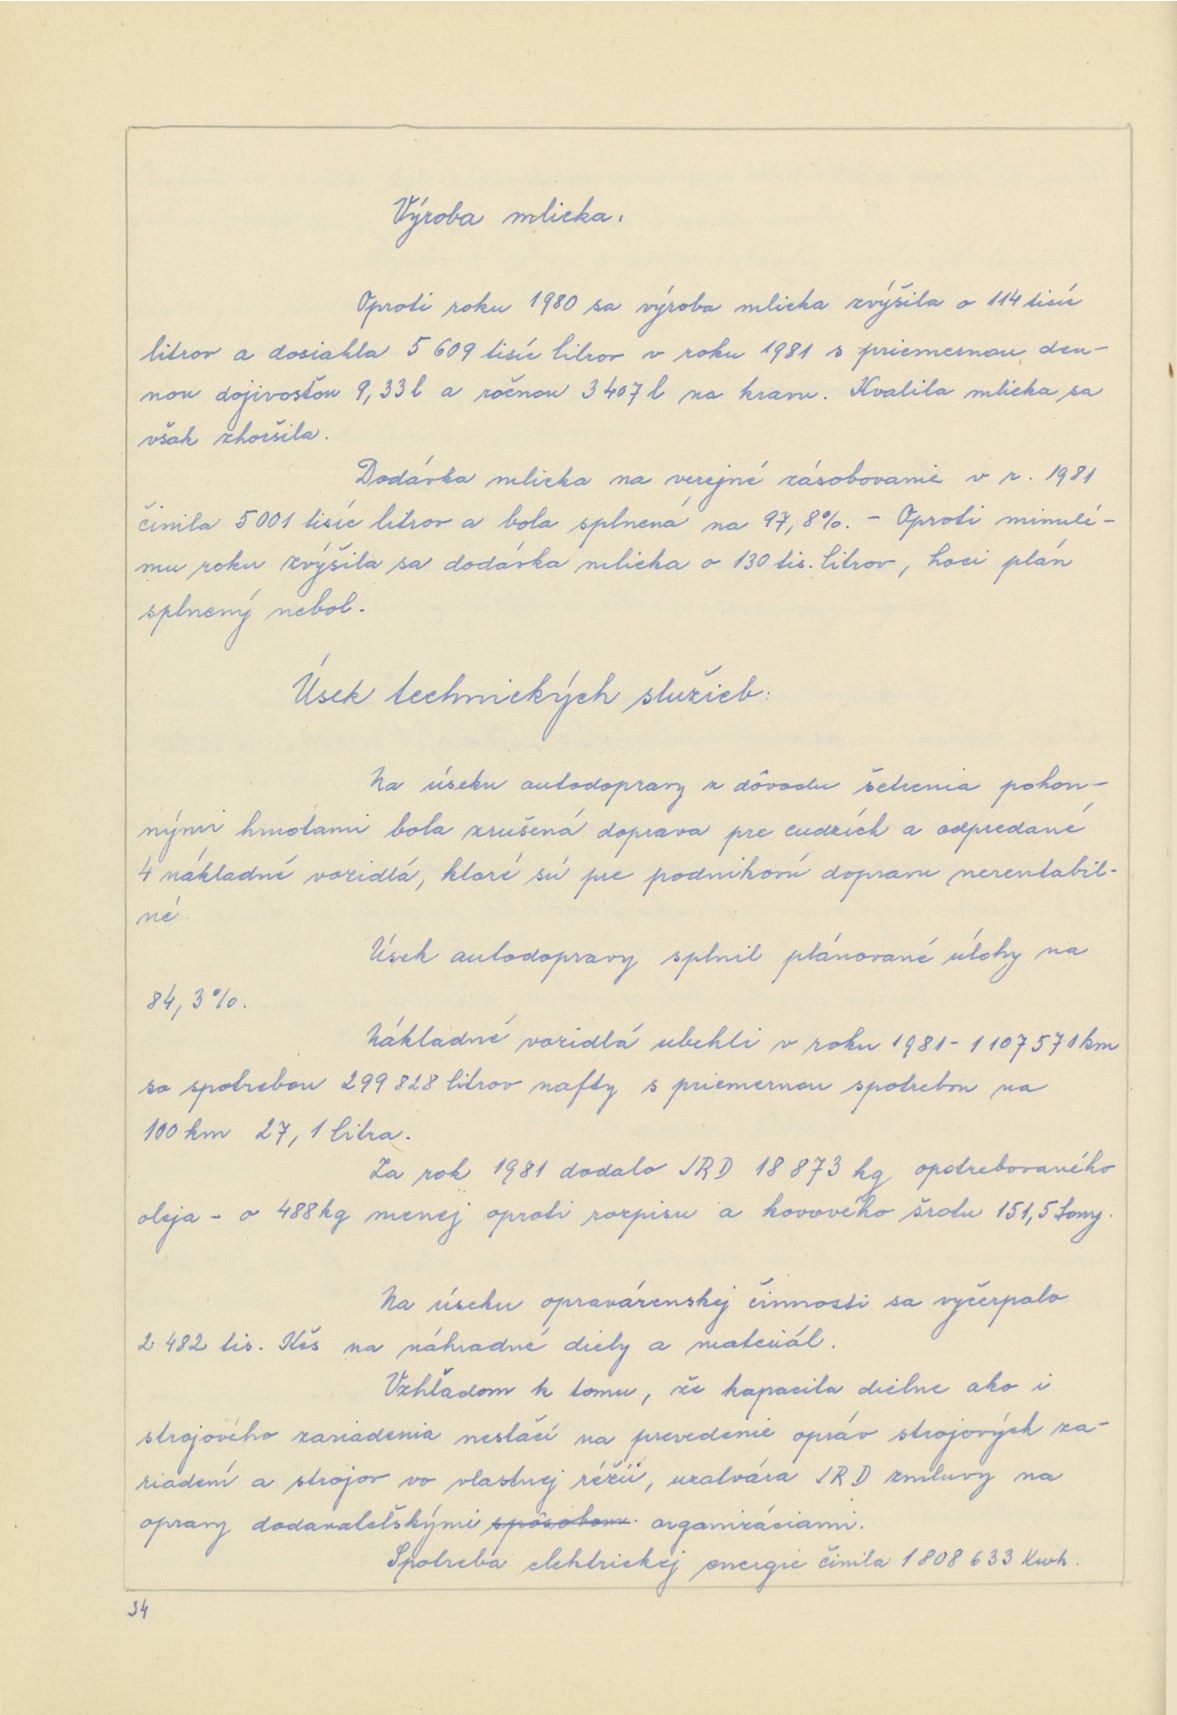 Výroba mlieka.
Oproti roku 1980 sa výroba mlieka zvýšila o 114 tisíc
litrov a dosiahla 5 609 tisíc litrov v roku 1981 s priemernou den-
nou dojivosťou 9,33 l a ročnou 3 407 l na kravu. Kvalita mlieka sa
však zhoršila.
Dodávka mlieka na verejné zásobovanie v r. 1981
činila 5 001 tisíc litrov a bola splnená na 97,8%. - Oproti minulé-
mu roku zvýšila sa dodávka mlieka o 130 tis. litrov, hoci plán
splnený nebol.
Úsek technických služieb:
Na úseku autodopravy z dôvodu šetrenia pohon-
nými hmotami bola zrušená doprava pre cudzích a odpredané
4 nákladné vozidlá, ktoré sú pre podnikovú dopravu nerentabil-
né
Úsek autodopravy splnil plánované úlohy na
84,3%.
Nákladné vozidlá ubehli v roku 1981 - 1 107 571 km
so spotrebou 299 828 litrov nafty s priemernou spotrebou na
100 km 27,1 litra.
Za rok 1981 dodalo JRD 18 873 kg opotrebovaného
oleja - o 488 kg menej oproti rozpisu a kovového šrotu 151,5 tony.
Na úseku opravárenskej činnosti sa vyčerpalo
2 482 tis. Kčs na náhradné diely a materiál.
Vzhľadom k tomu, že kapacita dielne ako i
strojového zariadenia nestačí na prevedenie opráv strojových za-
riadení a strojov vo vlastnej réžii, uzatvára JRD zmluvy na
opravy dodavateľskými spôsobom organizáciami.
Spotreba elektrickej energie činila 1 808 633 Kwh.
34